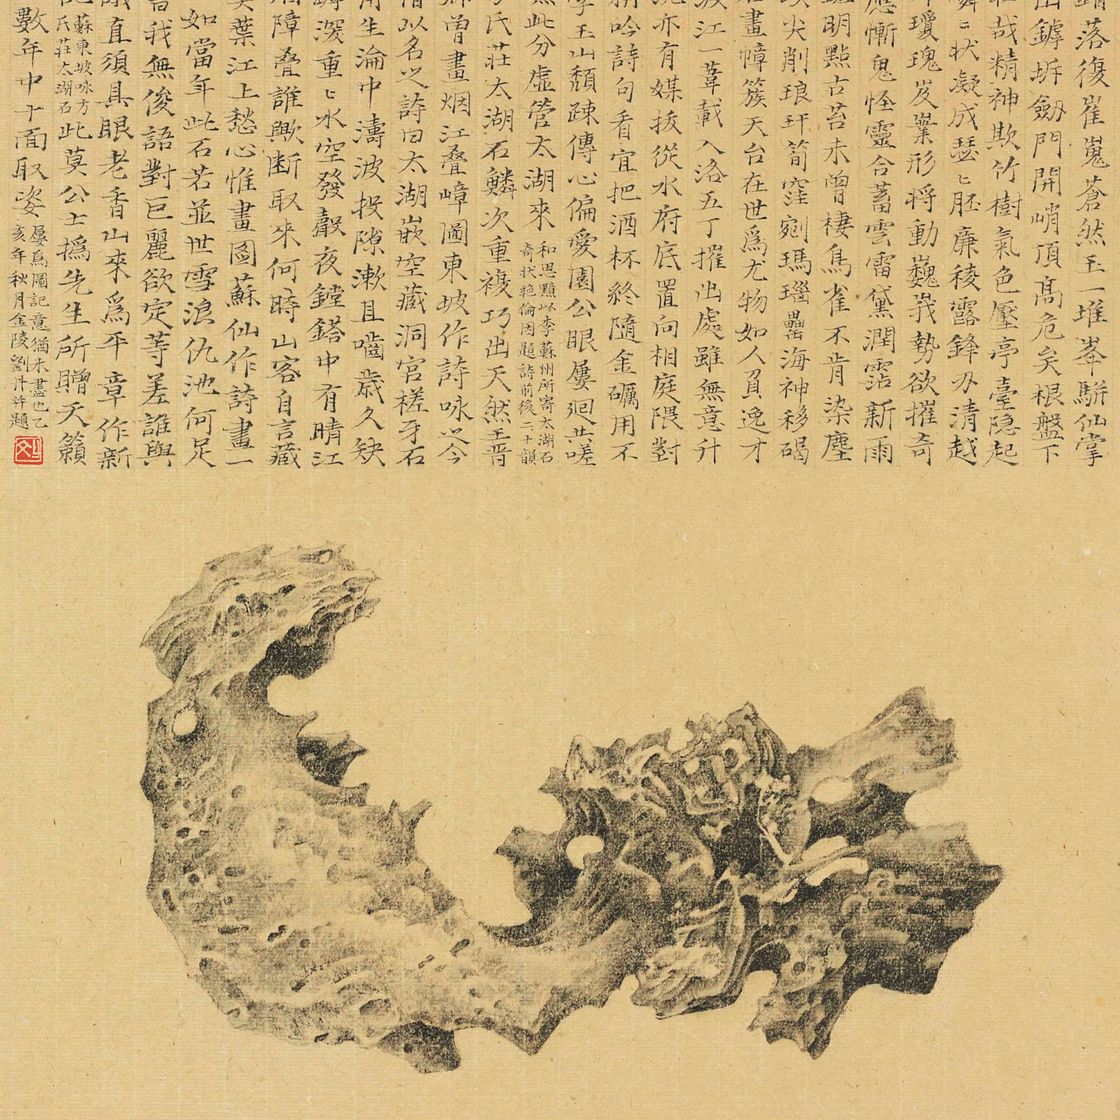 落復崔嵬蒼然玉一堆峯駢仙掌
出罅坼劍門開峭頂高危矣根盤下
壯哉精神欺竹樹氣色壓亭臺隱起
磷〻狀凝成瑟〻胚廉稜露鋒刃清越
扣瓊瑰岌嶪形將動巍峩勢欲摧奇
應慚鬼怪靈合蓄雲雷黛潤霑新雨
斑明點古苔未曾棲鳥雀不肯染塵
埃尖削琅玕筍窪剜瑪瑙罍海神移碣
石畫幛簇天台在世爲尤物如人負逸才
渡江一葦載入洛五丁摧出處雖無意升
沉亦有媒拔從水府底置向相庭隈對
稱吟詩句看宜把酒杯終隨金礪用不
學玉山頹疎傅心偏愛園公眼屢迴共嗟
無此分虛管太湖來
和思黯以李蘇州所寄太湖石
奇狀絕倫因題詩前後二十韻
方氏莊太湖石鱗次重複巧出天然王晉
卿曾畫烟江叠嶂圖東坡作詩咏之今
借以名之詩曰太湖嵌空藏洞宮槎牙石
生淪中濤波投隙漱且嚙歲久缺
罅深重〻水空發聲夜鏜鎝中有晴江
障叠誰歟斷取來何時山客自言藏
奕葉江上愁心惟畫圖蘇仙作詩畫一
如當年此石若並世雪浪仇池何足
言我無俊語對巨麗欲定等差誰與
議直須具眼老香山來爲平章作新
蘇東坡咏方
氏莊太湖石
此莫公士撝先生所贈天籟
數年中十面取姿
屢爲圖記意猶未盡也乙
亥年秋月金陵劉丹并題